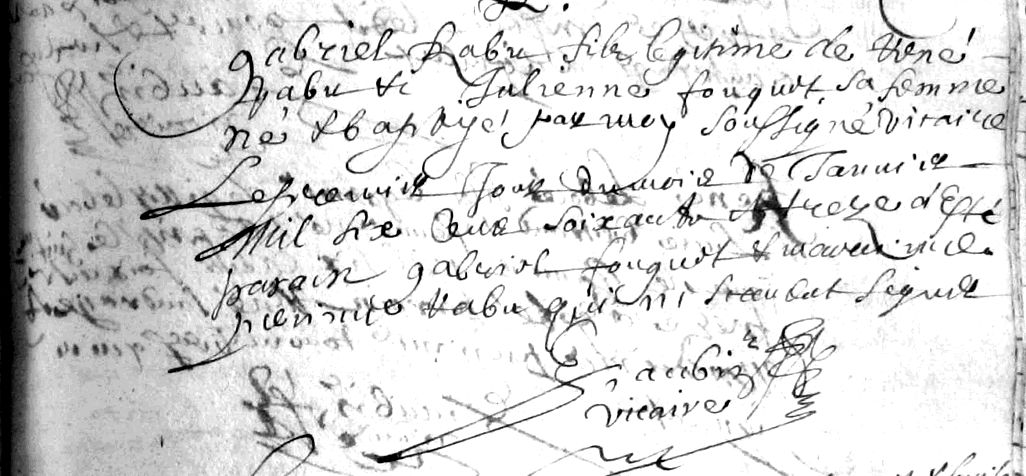 gabriel Rabu fils legitime de René
Rabu & Julienne fouquet sa femme
né & baptizé par moy soussigné vicaire
Le premier Jour du mois de Januier
Mil six Cens soixante & treze d'Esté
parain gabriel fouquet & mareinne
perinne Rabu qui ni scauent signer
aubin
vicaire